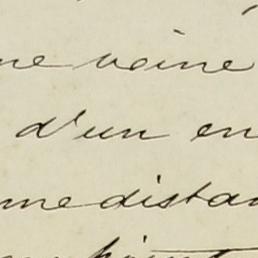 ne veine
d'un en
me distan
point